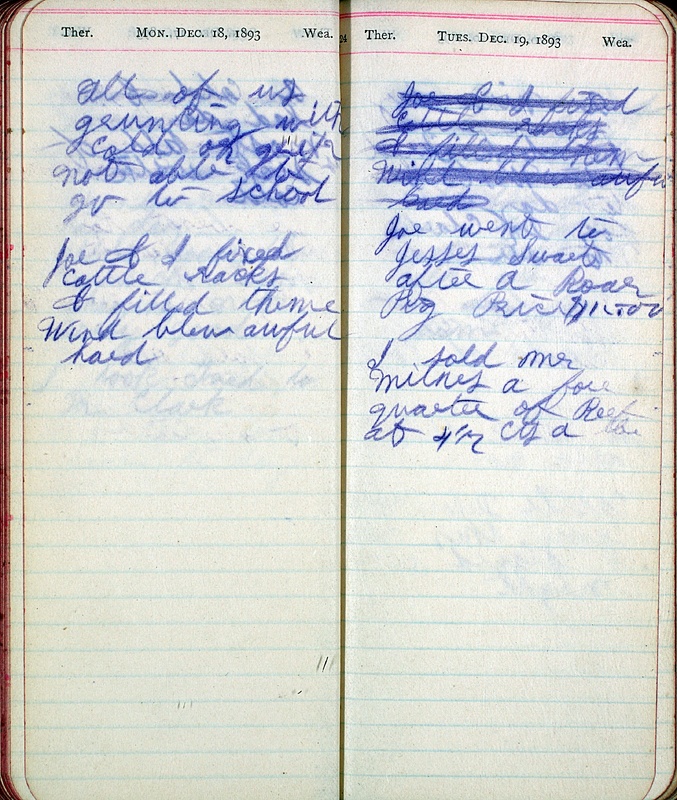 Ther. MON. DEC. 18, 1893 Wea.
All of us
grunting with
cold or grip
not able to
go to school
Joe & I fixed
cattle racks
I filled theme
Wind blew awful
hard
I took to
Clark
24 Ther. TUES. DEC. 19, 1893 Wea.
Joe & I fixed
Cattle racks
I filled them
Wind blew awful
hard
Joe went to
Jesses
after a Roar
Pig Price
I sold mr
Milnes a fore
quarter of Beef
at 4½ cts a